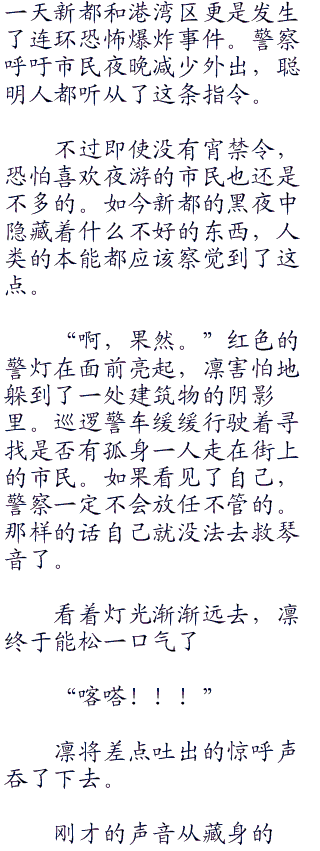 一天新都和港湾区更是发生
了连环恐怖爆炸事件。警察
呼吁市民夜晚减少外出，聪
明人都听从了这条指令。
不过即使没有宵禁令，
恐怕喜欢夜游的市民也还是
不多的。如今新都的黑夜中
隐藏着什么不好的东西，人
类的本能都应该察觉到了这
点。
“啊，果然。”红色的
警灯在面前亮起，凛害怕地
躲到了一处建筑物的阴影
里。巡逻警车缓缓行驶着寻
找是否有孤身一人走在街上
的市民。如果看见了自己，
警察一定不会放任不管的。
那样的话自己就没法去救琴
音了。
看着灯光渐渐远去，凛
终于能松一口气了
“喀嗒！！！”
凛将差点吐出的惊呼声
吞了下去。
刚才的声音从藏身的